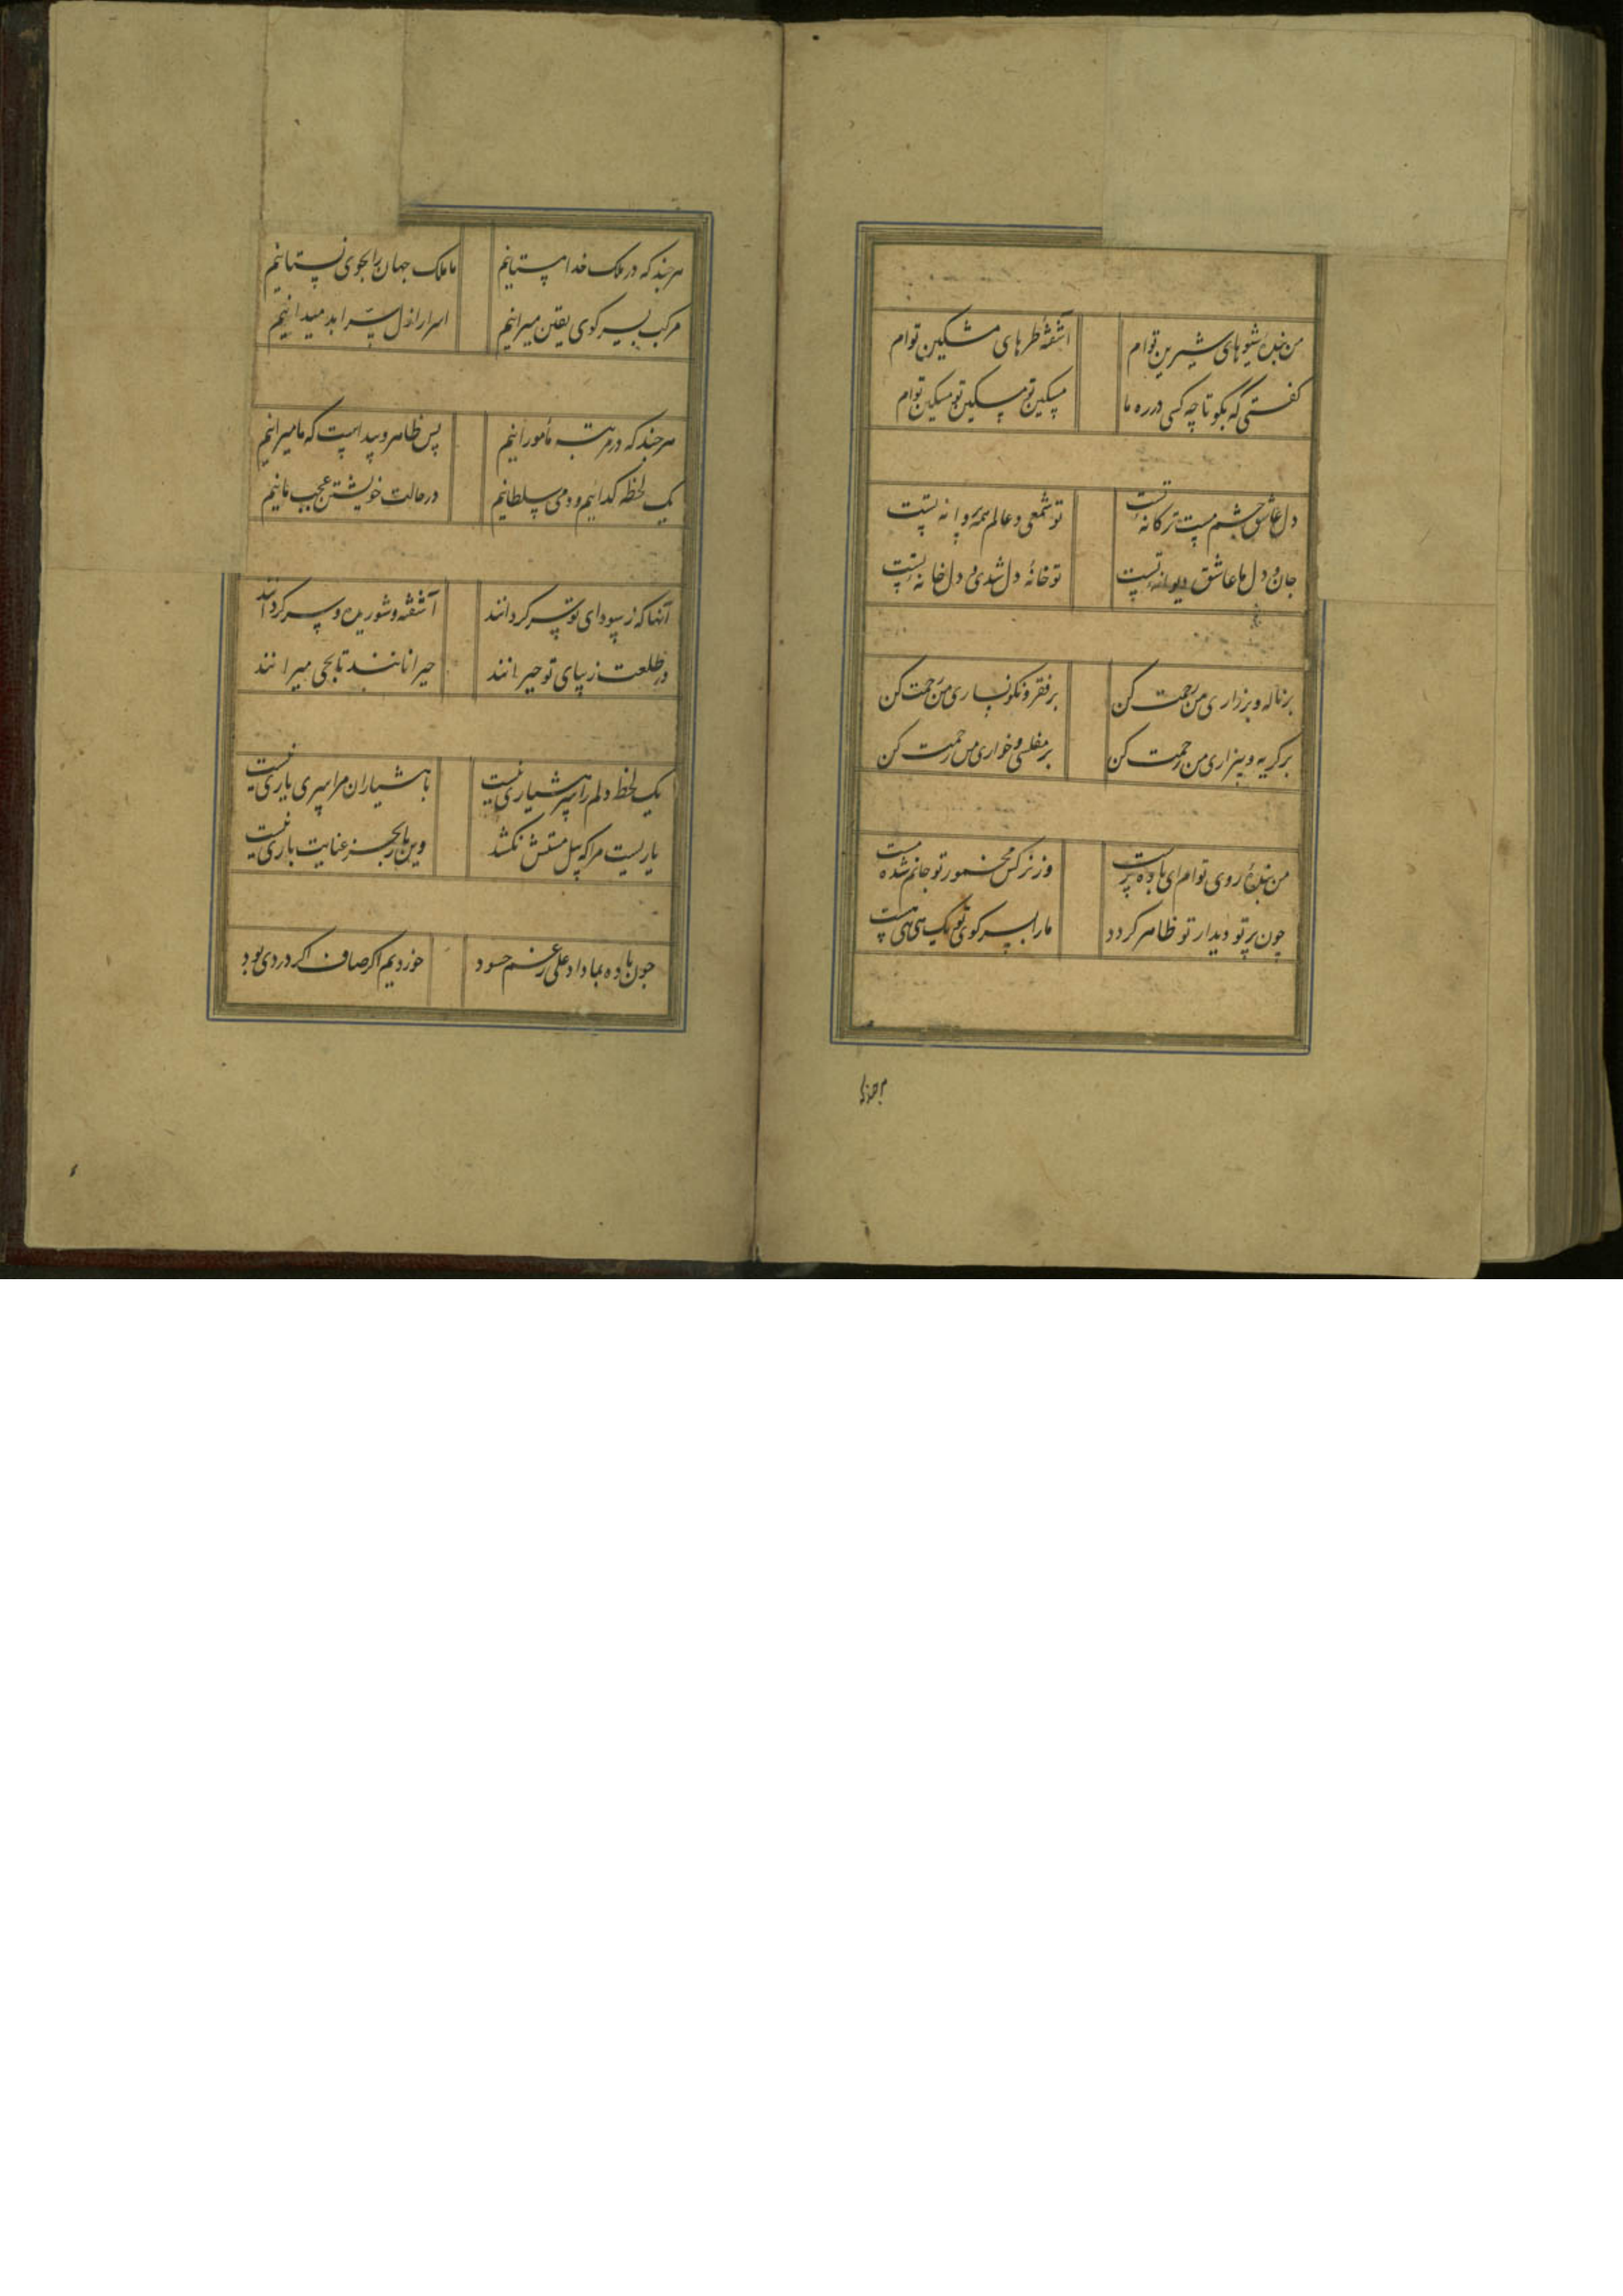 من بندهٔ شیوهای شیرین توام آشفتهٔ طرهای مشکین توام
گفتی که بگو تا چه کسی در ره ما مسکین تو مسکین تو مسکین توام
دل عاشق چشم مست ترکانهٔ تست تو شمعی و عالم همه پروانه تست
جان و دل ما عاشق دیوانه تست تو خانهٔ دل شدی و دل خانه تست
بر ناله و بر زاری من رحمت کن بر فقر و نکونساری من رحمت کن
بر کریه و بیزاری من رحمت کن بر مفلسی و خواری من رحمت کن
من بندهٔ روی توام ای باده پرست وز نرکس مخمور تو جانم شده مست
چون پرتو دیدار تو ظاهر کردد ما را بسر کوی تو
هر چند که
هر چند که در ملک خدا مستانیم ما ملک جهان را بجوی نستانیم
مرکب بسر کوی یقین میرانیم اسرار ازل بسر ابد میدانیم
هر چند که در مرتبه مأمورانیم پس ظاهر و پیداست که ما میرانیم
یک لحظه کدائیم و دمی سلطانیم در حالت خویشتن عجب مانیم
آنها که ز سودای تو سرکردانند آشفته و شوریده و سرکردانند
در طلعت زیبای تو حیرانند حیرانانند تا بجی میرانند
یک لحظه دلم را سر هشیاری نیست با هشیاران مرا سری یاری نیست
یاریست مرا که پیل مستش نکشد وین بار بجز عنایت باری نیست
چون باده بما داد علی رغم حسود خوردیم اکر صاف اکر دردی بود